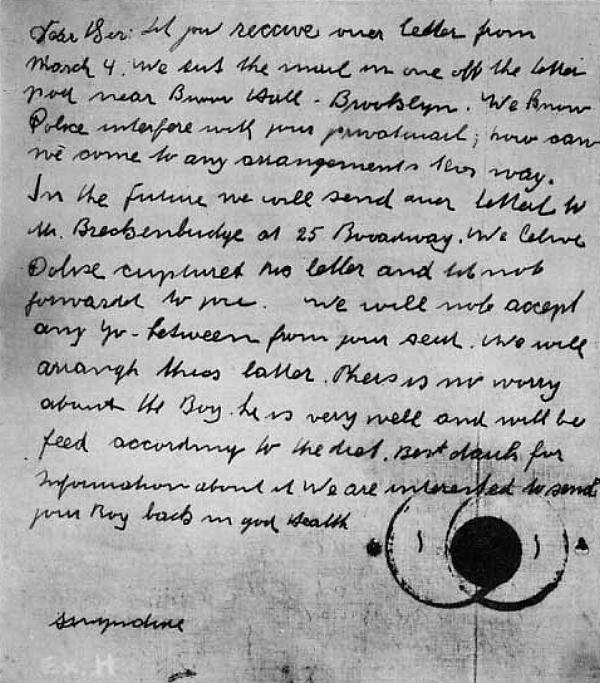 Dear Sir: Did you receive ouer letter from
March 4. We sent the mail in one off the letter
post near Burro Hall - Brooklyn. We know
Police interfere with your privatmail; how can
we come to any arrangements this way.
In the future we will send ouer letters to
Mr. Breckenbudge at 25 Broadway. We belive
Polise captured two letter and did not
forwardet to you. We will not accept
any go-between from your seid. We will
arrangh thiss latter. Thers is no worry
about the Boy. he is very well and will be
feed according to the diet. Best dank for
Information about it We are interested to send
your Boy back in gud Health
singnature
Ex. H